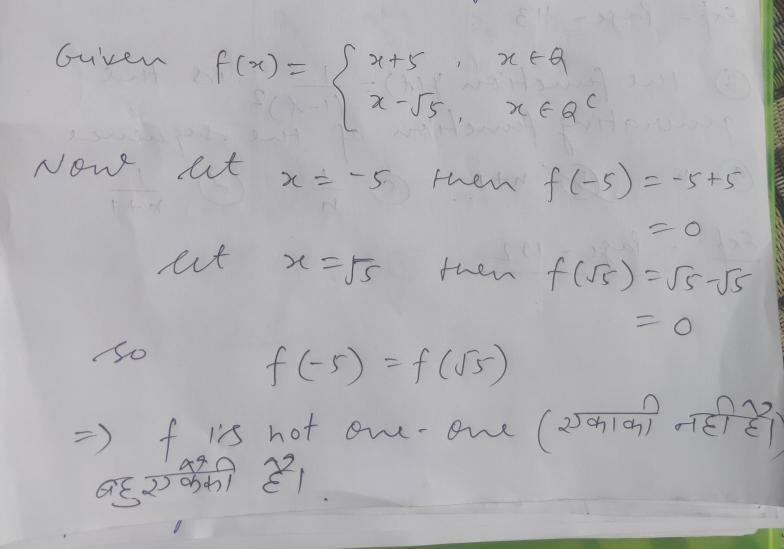 Given f(x) = { x+5, x ∈ Q
x-√5, x ∈ Q^c
Now let x = -5 then f(-5) = -5+5
= 0
let x = √5 then f(√5) = √5-√5
= 0
so f(-5) = f(√5)
=> f is not one-one (एकाकी नहीं है)
बहुएकैकी है।